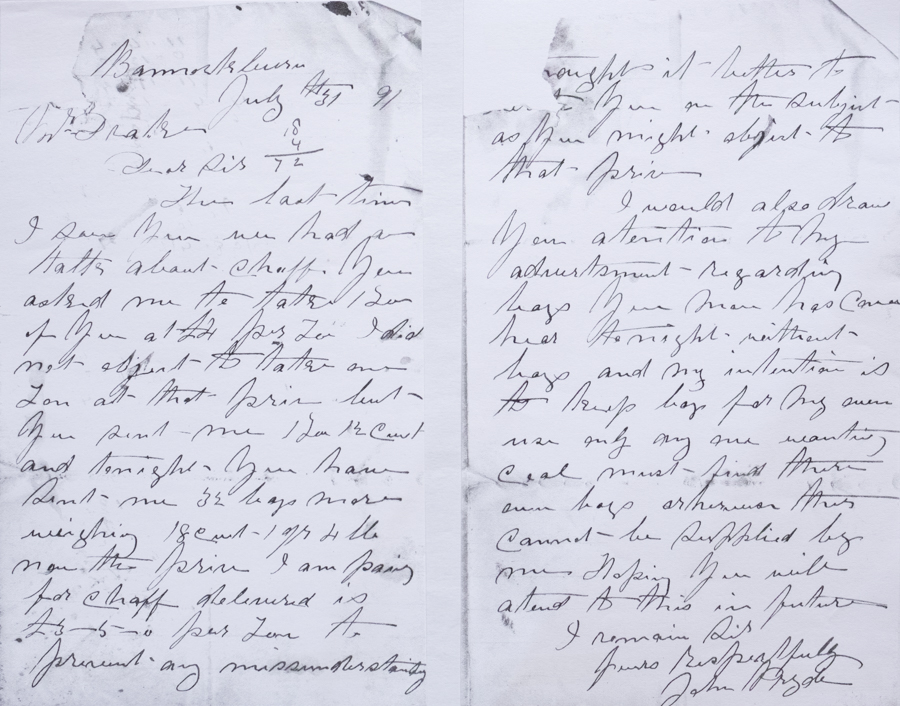 Bannockburn
July 31st 91
Drake
18
4
72
Dear Sir
The last time
I saw You we had a
talk about chaff. You
asked me to take 1 Ton
of You at £4 per Ton I did
not object to take one
Ton at that price but
You sent me 1 Ton 12 Cwt
and tonight You have
sent me 32 bags more
weighing 18 cwt 1 qr 4 lb
now the price I am paing
for chaff delivered is
£3-5-0 per Ton to
prevent any missunderstandig
it better to
You on the subject
as You might object to
that price
I would also draw
You atention to my
advertsment regarding
bags Your man has Come
hear tonight without
bags and my intention is
to keep bags for my own
use only any one wanting
coal must find there
own bags otherwise they
cannot be supplied by
me Hoping You will
attend to this in future
I remain Sir
yours Respectfully
John Pryde